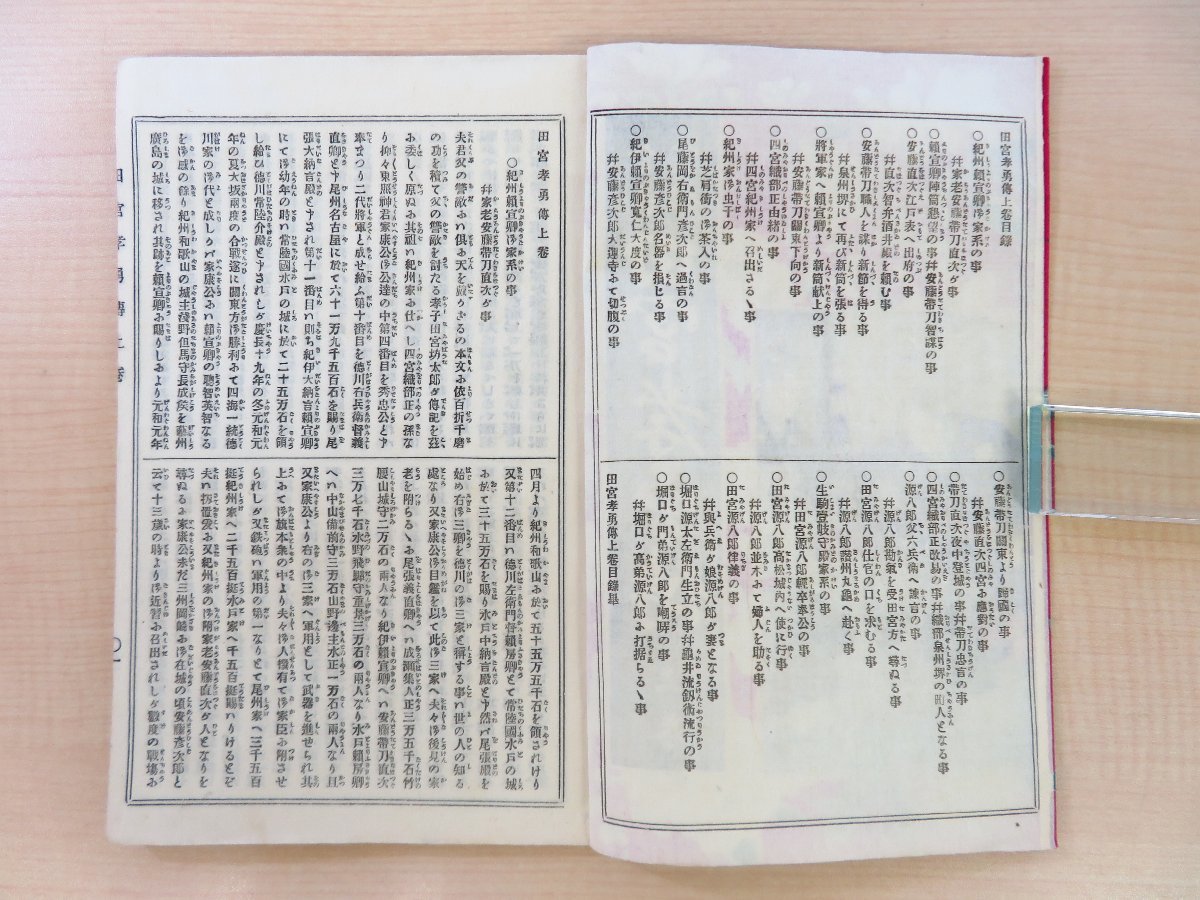 田宮孝勇傳上卷目錄
○紀州賴宣卿御家系の事
幷家老安藤帶刀直次が事
○賴宣卿陣筒懇望の事幷安藤帶刀智謀の事
○安藤直次江戸表へ出府の事
幷直次智弁酒井殿を賴む事
○安藤帶刀職人を謀り新節を得る事
幷泉州堺にて再び新筒を張る事
○將軍家へ賴宣卿より新筒献上の事
幷安藤帶刀關東下向の事
○四宮織部正由緒の事
幷四宮紀州家へ召出さるゝ事
○紀州家御虫干の事
幷芝肩衝の御茶入の事
○尾藤岡右衛門彦次郎へ過言の事
幷安藤彦次郎名器を損じる事
○紀伊賴宣卿寬仁大度の事
幷安藤彦次郎大運寺みて切腹の事
○安藤帶刀關東より歸國の事
幷安藤直次四宮みみ應對の事
○帶刀直次夜中登城の事幷帶刀忠言の事
○四宮織部正改易の事幷織部泉州堺の町人となる事
○源八郎炙六兵衞へ諫言の事
幷源八郎勘氣を受田宮方へ尋ぬる事
○田宮源八郎仕官の口を求むる事
幷源八郎讃州丸龜へ赴く事
○生駒登岐守殿家系の事
幷田宮源八郎輕卒奉公の事
○田宮源八郎高松城內へ使に行事
幷源八郎並木みて婦人を助る事
○田宮源八郎律義の事
幷與兵衛が娘源八郎が妻となる事
○堀口源太左衛門生立の事幷龜井流劔術流行の事
○堀口が門弟源八郎を嘲哢の事
幷堀口が高弟源八郎み打据らるゝ事
田宮孝勇傳上卷目錄畢
田宮孝勇傳上卷
○紀州賴宣卿御家系の事
幷家老安藤帶刀直次が事
夫君父の讐敵みハ俱み天を戴かざるの本文み依百折千磨
の功を積て父の讐敵を討たる孝子田宮坊太郎が傳記を玆
み委しく原ぬるみ其祖ハ紀州家み仕へし四宮織部正の孫な
り抑々東照神君家康公御公達の中第四番目を秀忠公と申
奉まつり二代將軍と成せ給ふ第十番目を德川右兵衛督義
直卿と申尾州名古屋に於て六十一万九千五百石を賜り尾
張大納言殿と申され第十一番目ハ則ち紀伊大納言賴宣卿
にて御幼年の時ハ常陸國水戸の城に於て二十五万石を領
し給ひ德川常陸介殿と申されしが慶長十九年の冬元和元
年の夏大坂兩度の合戰遂に關東方御勝利みて四海一統德
川家の御代と成しりバ家康公みハ賴宣卿の聰智英智なる
を御感の餘り紀州和歌山の城主淺野但馬守長成侯を藝州
廣島の城に移され其跡を賴宣卿み賜りしみより元和元年
四月より紀州和歌山み於て五十五万五千石を領されけり
又第十二番目ハ德川左衛門督賴房卿とて常陸國水戸の城
み於て三十五万石を賜り水戸中納言殿と申然バ尾張殿を
始め右御三卿を德川の御三家と稱する事ハ世の人の知る
處なり又家康公御目鑑を以て此御三家へ夫々御後見の家
老を附らるゝみ尾張義直卿へハ成瀨集人正三万五千石竹
腰山城守二万石の兩人なり紀伊賴宣卿へハ安藤帶刀直次
三万七千石水野飛驒守重景三万石の兩人なり水戸賴房卿
へハ中山備前守三万石山野邊主水正一万石の兩人なり且
又家康公より右の御三家へ軍用として武器を進せられ其
上みて御旗本衆の中より夫々御人撰有て御家臣み附させ
られしが又鉄砲ハ軍用の第一なりとて尾州家へ三千五百
挺紀州家へ二千五百挺水戸家へ千五百挺賜ハりけるとぞ
夫ハ扨置爰み又紀州家の附家老安藤直次が人となりを
尋ぬるみ家康公未だ三州岡崎み御在城の頃安藤彦次郎と
云て十三歲の時より御近習み召出されしが數度の戰塲み